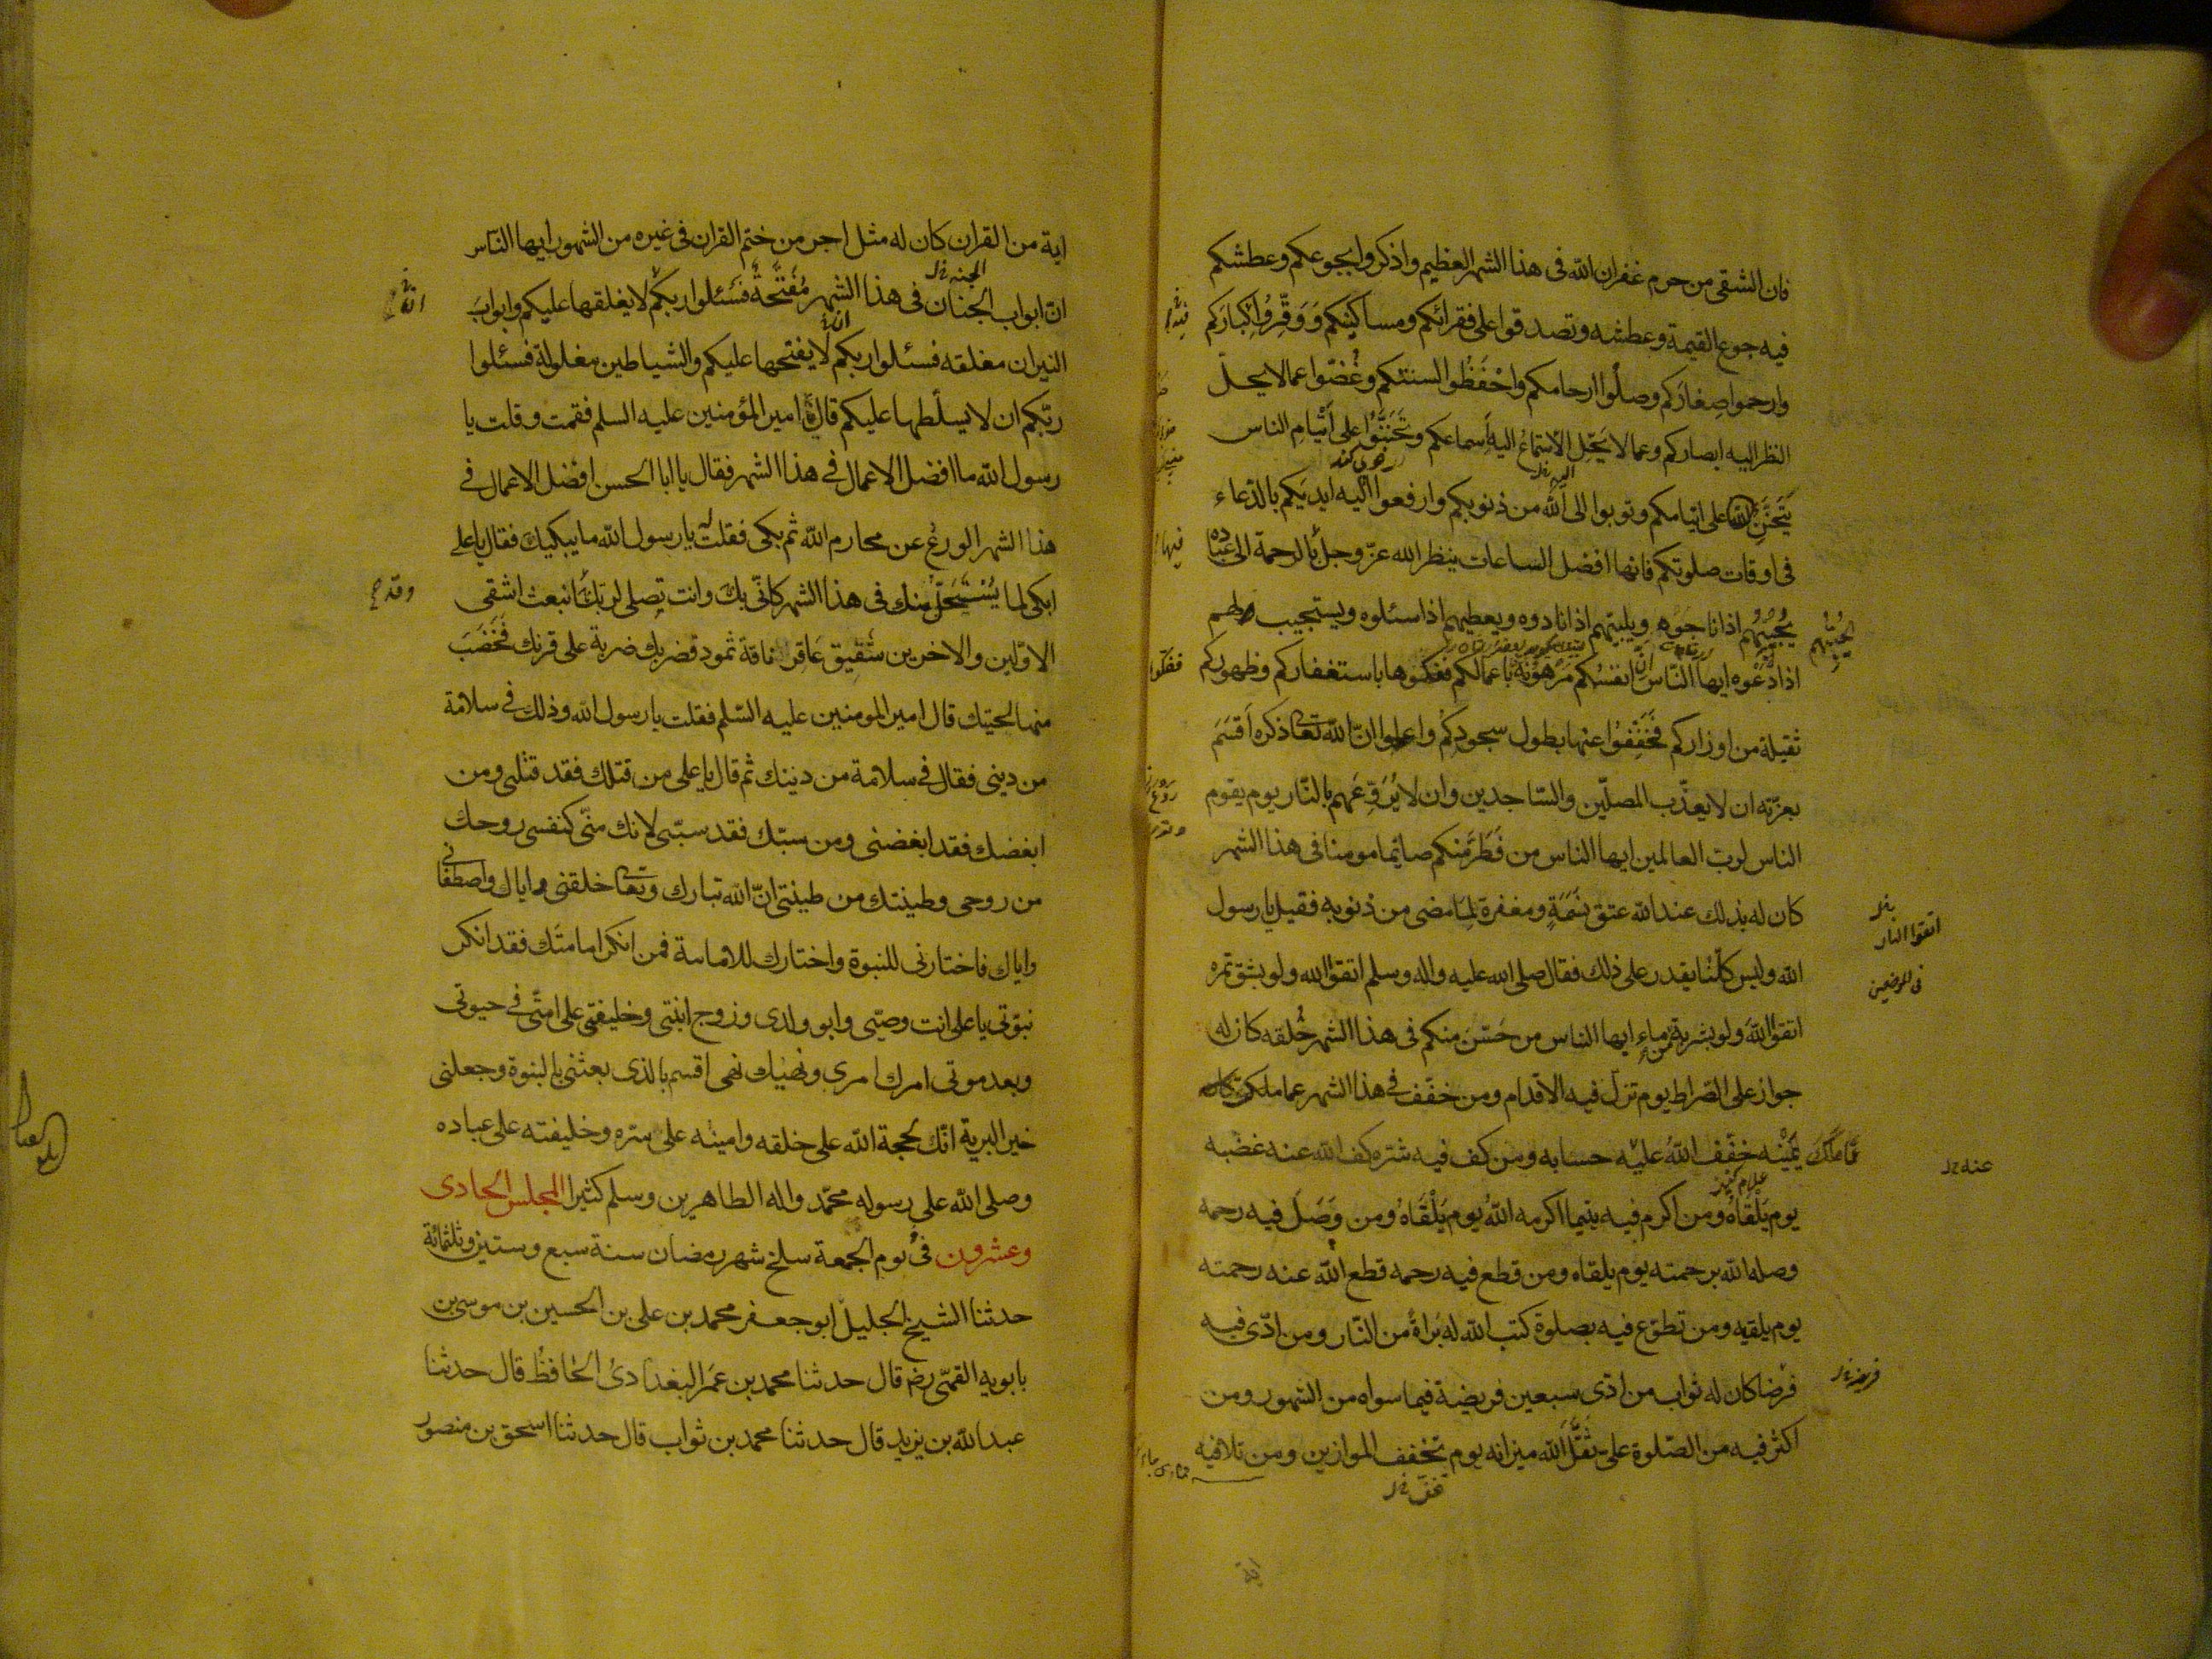 فان الشقى من حرم غفران الله فى هذا الشهر العظيم واذكروا بجوعكم وعطشكم
فيه جوع القيمة وعطشه وتصدقوا على فقرائكم ومساكينكم وَوَقِّرُوا كِبارَكم
وارحموا صِغارَكم وصلُوا ارحامكم واحْفَظُوا السنتكم وغُضّوا عما لا يحلّ
النظر اليه ابصاركم وعما لا يَحِّل الاستماعُ اليه اسماعكم وتَحَنَّنُوا على اَيْتامِ الناس
يَتَحَنَّنِ الله على ايتامكم وتوبوا الى الله من ذنوبكم وارفعوا اليه ايديَكم بالدّعاء
فى اوقات صلوتكم فانها افضل الساعات ينظر الله عزّ وجل بالرحمة الى عباده
يُجيبُهُم اذا ناجَوْه ويلبيّهم اذا نادوه ويعطيهم اذا سئلوه ويستجيب لهم
اذا دَعَوْه ايها النّاس انّ انفسُكم مَرْهُونَةٌ باعمالكم ففكوها باستغفاركم وظهوركم
ثقيلة من اوزاركم فَخَفِّفُوا عنها بطول سجودِكُم واعلموا انّ الله تعالى ذكره اَقسَمَ
بعزّته ان لا يعذّب المصلّين والسّاجدين وان لا يُرَوِّعَهم بالنّار يوم يقوم
الناس لرب العالمين ايها الناس من فَطَّرَ منكم صايما مومنا فى هذا الشهر
كان له بذلك عند الله عتق نَسَمَةٍ ومغفرة لِمَا مضى من ذنوبه فقيل يا رسول
الله وليس كلّنا يقدر على ذلك فقال صلى الله عليه واله وسلم اتقوا الله ولو بشق تمرة
اتقوا الله ولو بشربةٍ من ماءٍ ايها الناس من حَسّن منكم فى هذا الشهر خُلقه كان له
جواز على الصّراط يوم تزلّ فيه الاقدام ومن خفّف فى هذا الشهر عما ملكت
عمّا مَلَكَ يَمينُه خفّف اللهُ عليه حسابه ومن كف فيه شرّه كف الله عنه غضبه
يوم يَلْقَاهُ ومن اكرم فيه يتيما اكرمه اللهُ يوم يَلْقَاهُ ومن وَصَلَ فيه رحمه
وصله الله برحمته يوم يلقاه ومن قطع فيه رحمه قطع الله عنه رحمته
يوم يلقيه ومن تطوّع فيه بصلوة كتب الله له بَراةً من النّار ومن ادّى فيه
فرضا كان له ثواب من ادّى سبعين فريضة فيما سواه من الشهور ومن
اكثر فيه من الصّلوة علىّ ثَقَّلَ الله ميزانه يوم تخفف الموازين ومن تلا فيه
فيها
ففكوا
اتقوا النار
فى الموضعين
عنه خ ل
فريضه خ ل
تخفّ خ ل
اية
اية من القران كان له مثل اجر من ختم القران فى غيره من الشهور ايها الناس
انّ ابواب الجنان فى هذا الشهر مُفَتَّحَةٌ فسَئلوا ربكم لا يغلقها عليكم وابوابَ
النيران مغلقه فسئلوا ربكم لا يفتحها عليكم والشياطين مغلولة فسئلوا
ربّكم ان لا يسلّطها عليكم قال امير المؤمنين عليه السلم فقمت وقلت يا
رسول الله ما افضل الاعمال فى هذا الشهر فقال يا ابا الحسن افضل الاعمال فى
هذا الشهر الورعُ عن محارم الله ثم بكى فقلت يا رسول الله ما يبكيك فقال يا على
ابكى لما يُسْتَحَلّ منك فى هذا الشهر كانّى بك وانت تصلى لربك انبعث اشقى
الاوّلين والاخرين شَقيق عَاقر ناقة ثمود فضربك ضربة على قرنك فَخَضَبَ
منها لحيتك قال امير المومنين عليه السّلم فقلت يا رسول الله وذلك فى سلامة
من دينى فقال فى سلامة من دينك ثم قال يا على من قتلك فقد قتلنى ومن
ابغضك فقد ابغضنى ومن سبّك فقد سبّنى لانك منّى كنفسى روحك
من روحى وطينتك من طينتى انّ الله تبارك وتعالى خلقنى واياك واصطفانى
واياك فاختارنى للنبوة واختارك للامامة فمن انكر امامتَك فقد انكر
نبوّتى يا على انت وصيّى وابو ولدى وزوج ابنتى وخليفتى على امّتى فى حيوتى
وبعد موتى امرك امرى ونهيك نهى اقسم بالذى بعثنى بالنبوة وجعلنى
خير البرية انّك لحجة الله على خلقه وامينه على سرّه وخليفته على عباده
وصلى الله على رسوله محمّد واله الطاهرين وسلم كثيرا المجلس الحادى
وعشرون فى يوم الجمعة سلخ شهر رمضان سنة سبع وستين وثلثمائة
حدثنا الشيخ الجليل ابو جعفر محمد بن على بن الحسين بن موسى بن
بابويه القمّى رضه قال حدثنا محمد بن عمَر البغدادىُ الحافظُ قال حدثنا
عبد الله بن يزيد قال حدثنا محمد بن ثواب قال حدثنا اسحق بن منصور
الجنه خ ل